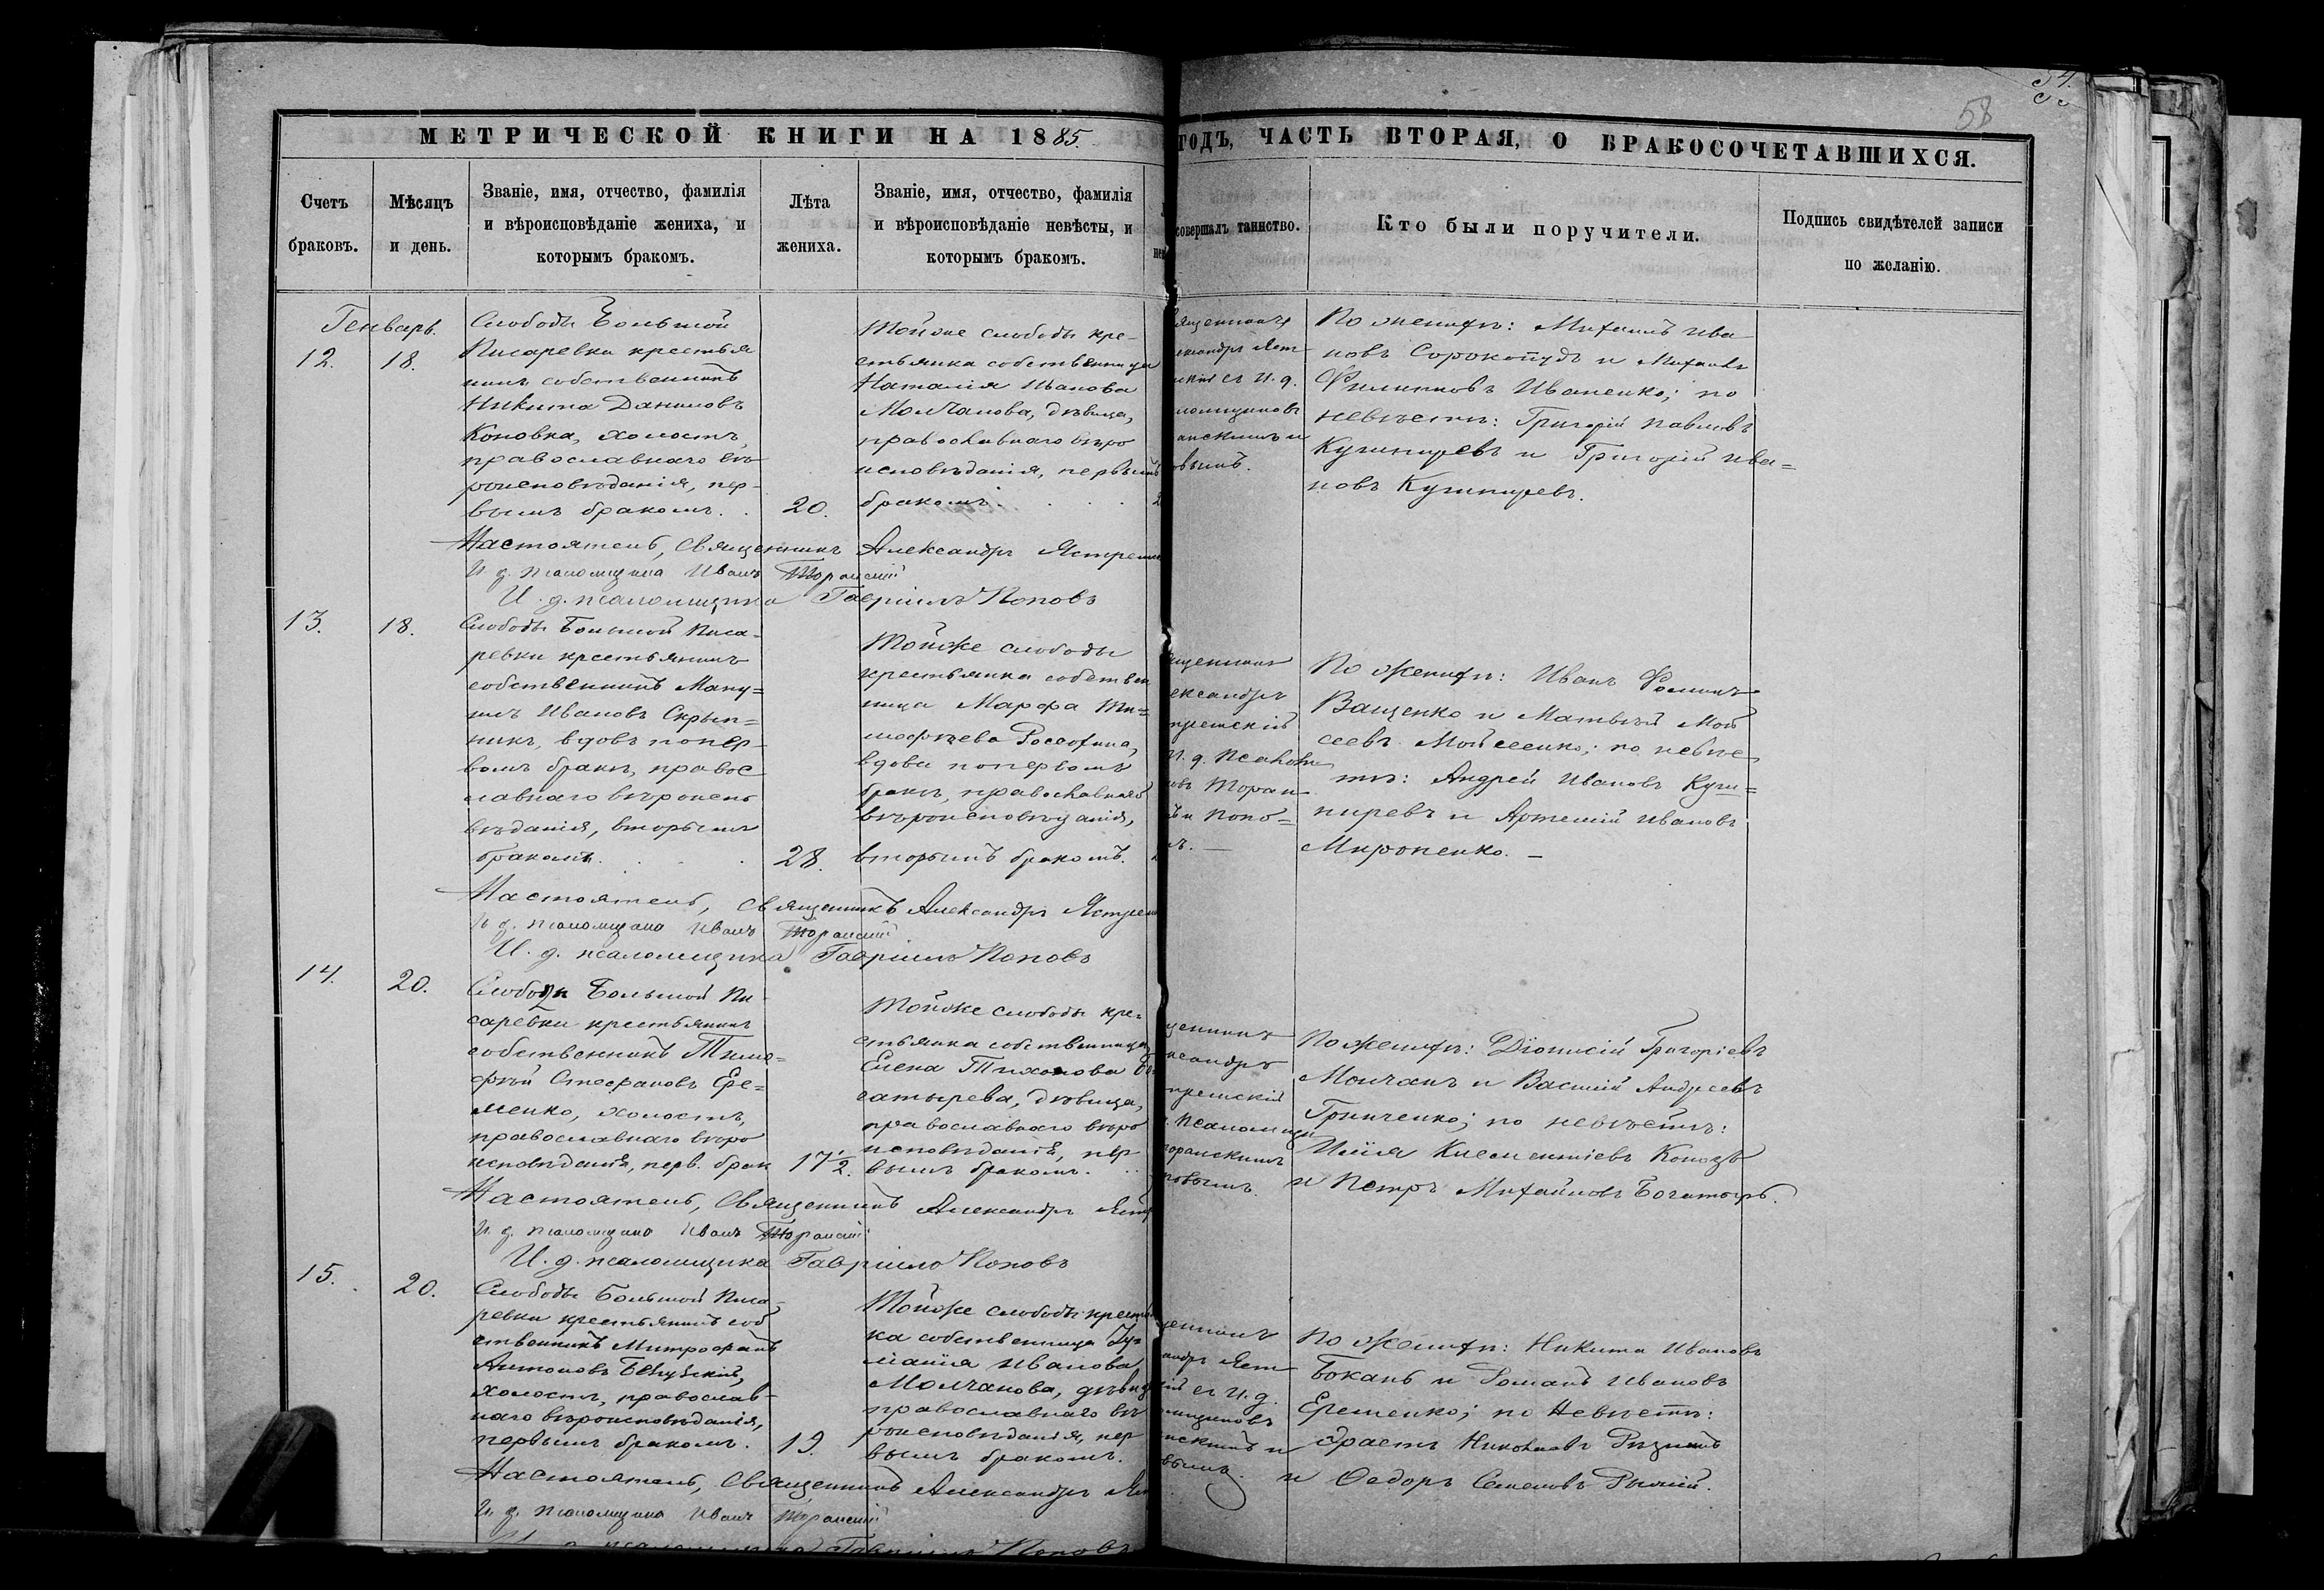 58
МЕТРИЧЕСКОЙ КНИГИ НА 1885.
ГОДЪ, ЧАСТЬ ВТОРАЯ, О БРАКОСОЧЕТАВШИХСЯ.
Счетъ браковъ.
Мѣсяцъ и день.
Званіе, имя, отчество, фамилія
и вѣроисповѣданіе жениха, и
которымъ бракомъ.
Лѣта
жениха.
Званіе, имя, отчество, фамилія
и вѣроисповѣданіе невѣсты, и
которымъ бракомъ.
совершалъ таинство.
Кто были поручители.
Подпись свидѣтелей записи
по желанію.
Генварь.
12.
18.
Слободы Большой
Писаревки крестья
нинъ собственникъ
Никита Даниловъ
Коновка, холостъ,
православнаго вѣ
роисповѣданія, пер-
вымъ бракомъ.
20.
Тойже слободы кре-
стьянка собственница
Наталія Иванова
Молчанова, дѣвица,
православнаго вѣро
исповѣданія, первымъ
бракомъ.
священникъ
ександръ Яст
скій съ и. д.
ломщиковъ
анскимъ и
овымъ.
По женихѣ: Михаилъ Ива
новъ Сорокопудъ и Михаилъ
Филиповъ Иваненко; по
невѣстѣ: Григорій Павловъ
Кушниревъ и Григорій Ива=
новъ Кушниревъ.
Настоятель, Священникъ Александръ Ястрем
И. д. псаломщика Иванъ Торанскій
И. д. псаломщика Гавріилъ Поповъ
13.
18.
Слободы Большой Писа-
ревки крестьянинъ
собственникъ Ману=
илъ Ивановъ Скрып=
никъ, вдовъ по пер-
вомъ бракѣ, правос
лавнаго вѣроиспо
вѣданія, вторымъ
бракомъ.
28.
Тойже слободы
крестьянка собствен
ница Марфа Ти=
мофѣева
вдова по первомъ
бракѣ, православнаго
вѣроисповѣданія,
вторымъ бракомъ.
ященникъ
ександръ
тремскій
и. д. псалом
овъ Торан
ъ и Попо=
ъ. —
По женихѣ: Иванъ Фоминъ
Ващенко и Матвѣй Мой
сеевъ Мойсеенко; по невѣс
тѣ: Андрей Ивановъ Куш=
ниревъ и Артемій Ивановъ
Мироненко. —
Настоятель, Священникъ Александръ Ястрем
И. д. псаломщика Иванъ Торанскій
И. д. псаломщика Гавріилъ Поповъ
14.
20.
Слободы Большой Пи
саревки крестьянинъ
собственникъ Тимо=
фѣй Стефановъ Ере=
менко, холостъ,
православнаго вѣро
исповѣданія, перв. брак
17½.
Тойже слободы кре=
стьянка собственница
Елена Тихонова Бо=
гатырева, дѣвица,
православнаго вѣро
исповѣданія, пер
вымъ бракомъ.
щенникъ
ксандръ
тремскій
. псаломщи
торанскимъ
повымъ.
По женихѣ: Діонисій Григоріевъ
Молчанъ и Василій Андреевъ
Гринченко; по невѣстѣ:
Илія Клементіевъ
и Петръ Михайловъ Богатырь.
Настоятель, Священникъ Александръ Яст
И. д. псаломщика Иванъ Торанскій
И. д. псаломщика Гавріилъ Поповъ
15.
20.
Слободы Большой Писа-
ревки крестьянинъ соб
ственникъ Митрофанъ
Антоновъ
холостъ, православ-
наго вѣроисповѣданія,
первымъ бракомъ.
19.
Тойже слободы крестьян
ка собственница Іу
ліанія Иванова
Молчанова, дѣвица
православнаго вѣ
роисповѣданія, пер
вымъ бракомъ.
щенникъ
андръ Яст
ій съ и. д.
омщиковъ
нскимъ и
овымъ.
По женихѣ: Никита Ивановъ
Боканъ и Романъ Ивановъ
Еременко; по невѣстѣ:
Эрастъ Николаевъ
и Ѳедоръ Семеновъ
Настоятель, Священникъ Александръ Яс
И. д. псаломщика Иванъ Торанскій
И. д. псаломщика Гавріилъ Поповъ